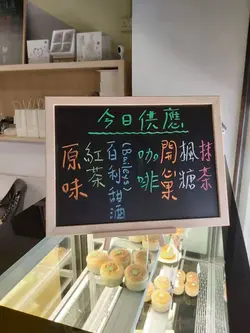 今日供應
抹茶
楓糖
開心果
咖啡
(Baileys)
百利甜酒
紅茶
原味